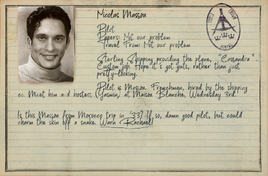 Nicolas Masson
Pilot
Papers: Not our problem
Travel From: Not our problem
Starling Shipping providing the plane, "Cosandra".
Custom job. Hope it's got guts, rather than just
pretty-looking.
Pilot is Masson, Frenchman, hired by the shipping
co. Meet him and hostess (Yasmin) at Maison Blanche, Wednesday 3rd.
Is this Masson from Morocco trip in '33? If so, damn good pilot, but could
charm the skin off a snake. Warn